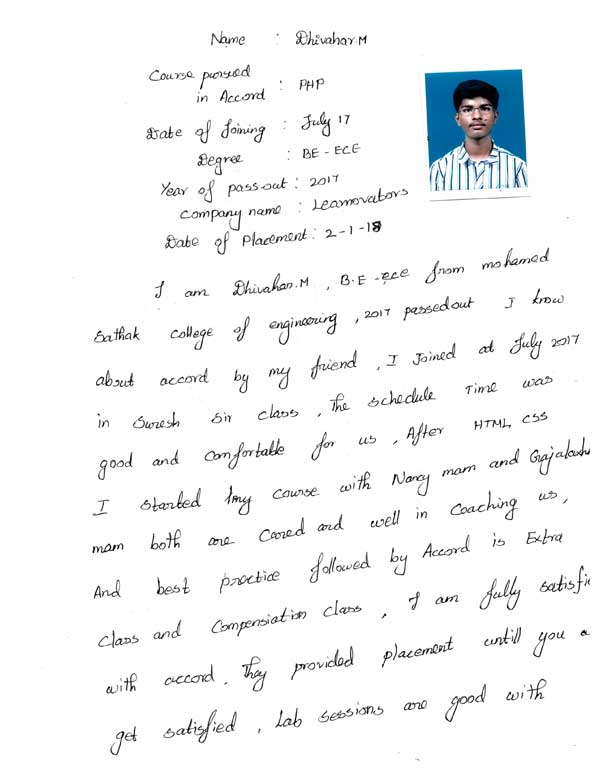 Name : Dhivahar.M
Course pursed
in Accord : PHP
Date of Joining : July 17
Degree : BE - ECE
Year of pass-out : 2017
Company name : Learnovators
Date of Placement : 2-1-18
I am Dhivahar.M , B.E - ece from mohamed
Sathak college of engineering , 2017 passedout I know
about accord by my friend , I Joined at July 2017
in Suresh Sir class , The schedule Time was
good and comfortable for us , After HTML CSS
I started my course with Nancy mam and
mam both are Cared and well in Coaching us ,
And best practice followed by Accord is Extra
Class and Compensiation class , I am fully
with accord . They provided placement untill you
get satisfied , Lab sessions are good with